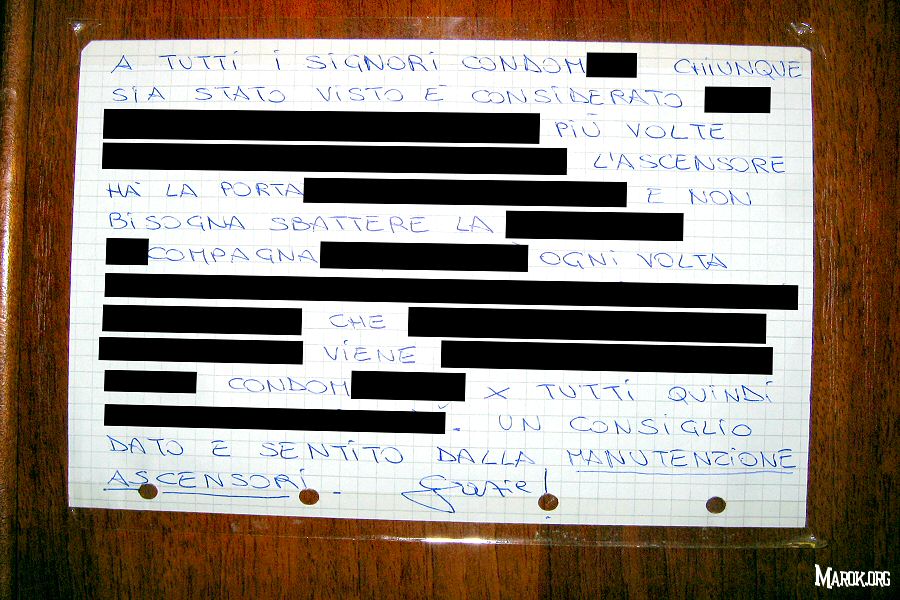 A TUTTI I SIGNORI CONDOM CHIUNQUE
SIA STATO VISTO E CONSIDERATO
PIÙ VOLTE
L'ASCENSORE
HA LA PORTA E NON
BISOGNA SBATTERE LA
COMPAGNA OGNI VOLTA
CHE
VIENE
CONDOM X TUTTI QUINDI
. UN CONSIGLIO
DATO E SENTITO DALLA MANUTENZIONE
ASCENSORI. Grazie!
MAROK.ORG